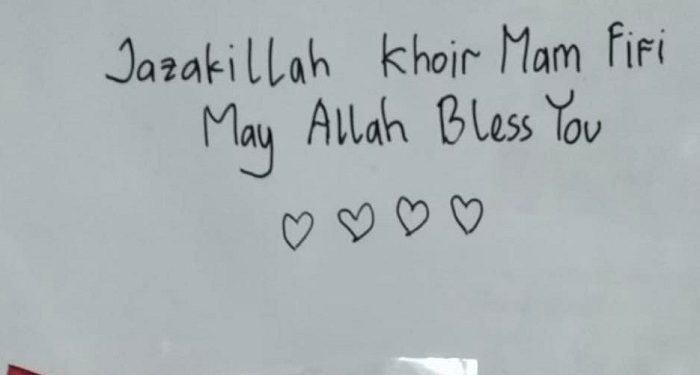 Jazakillah Khoir Mam Fifi
May Allah Bless You